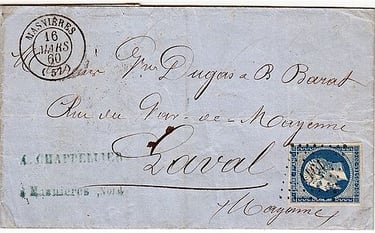 MASNIÈRES
16
MARS
60
(57)
Dugas & B Barat
Rue du Pas de Mayenne
Laval
Mayenne
A. CHAPPELLIER
à Masnières, Nord